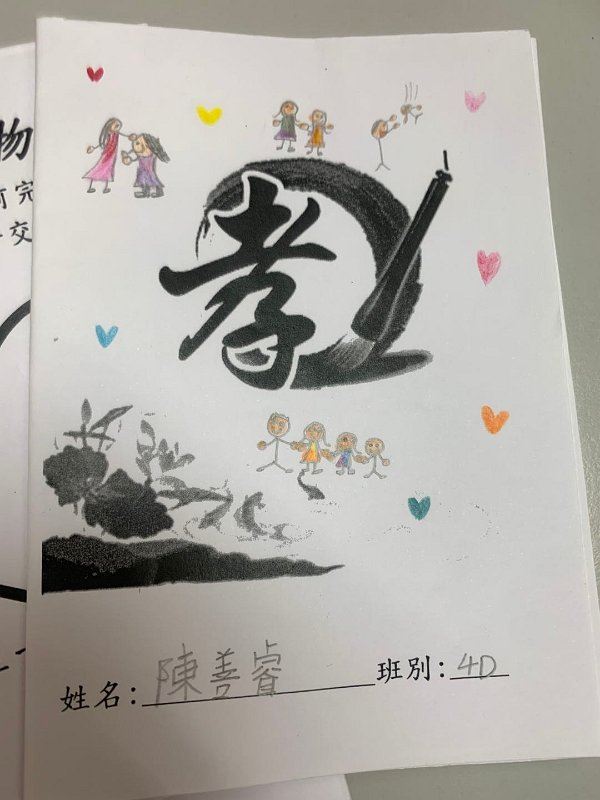 孝
姓名：陳善睿 班別：4D
物
完
交